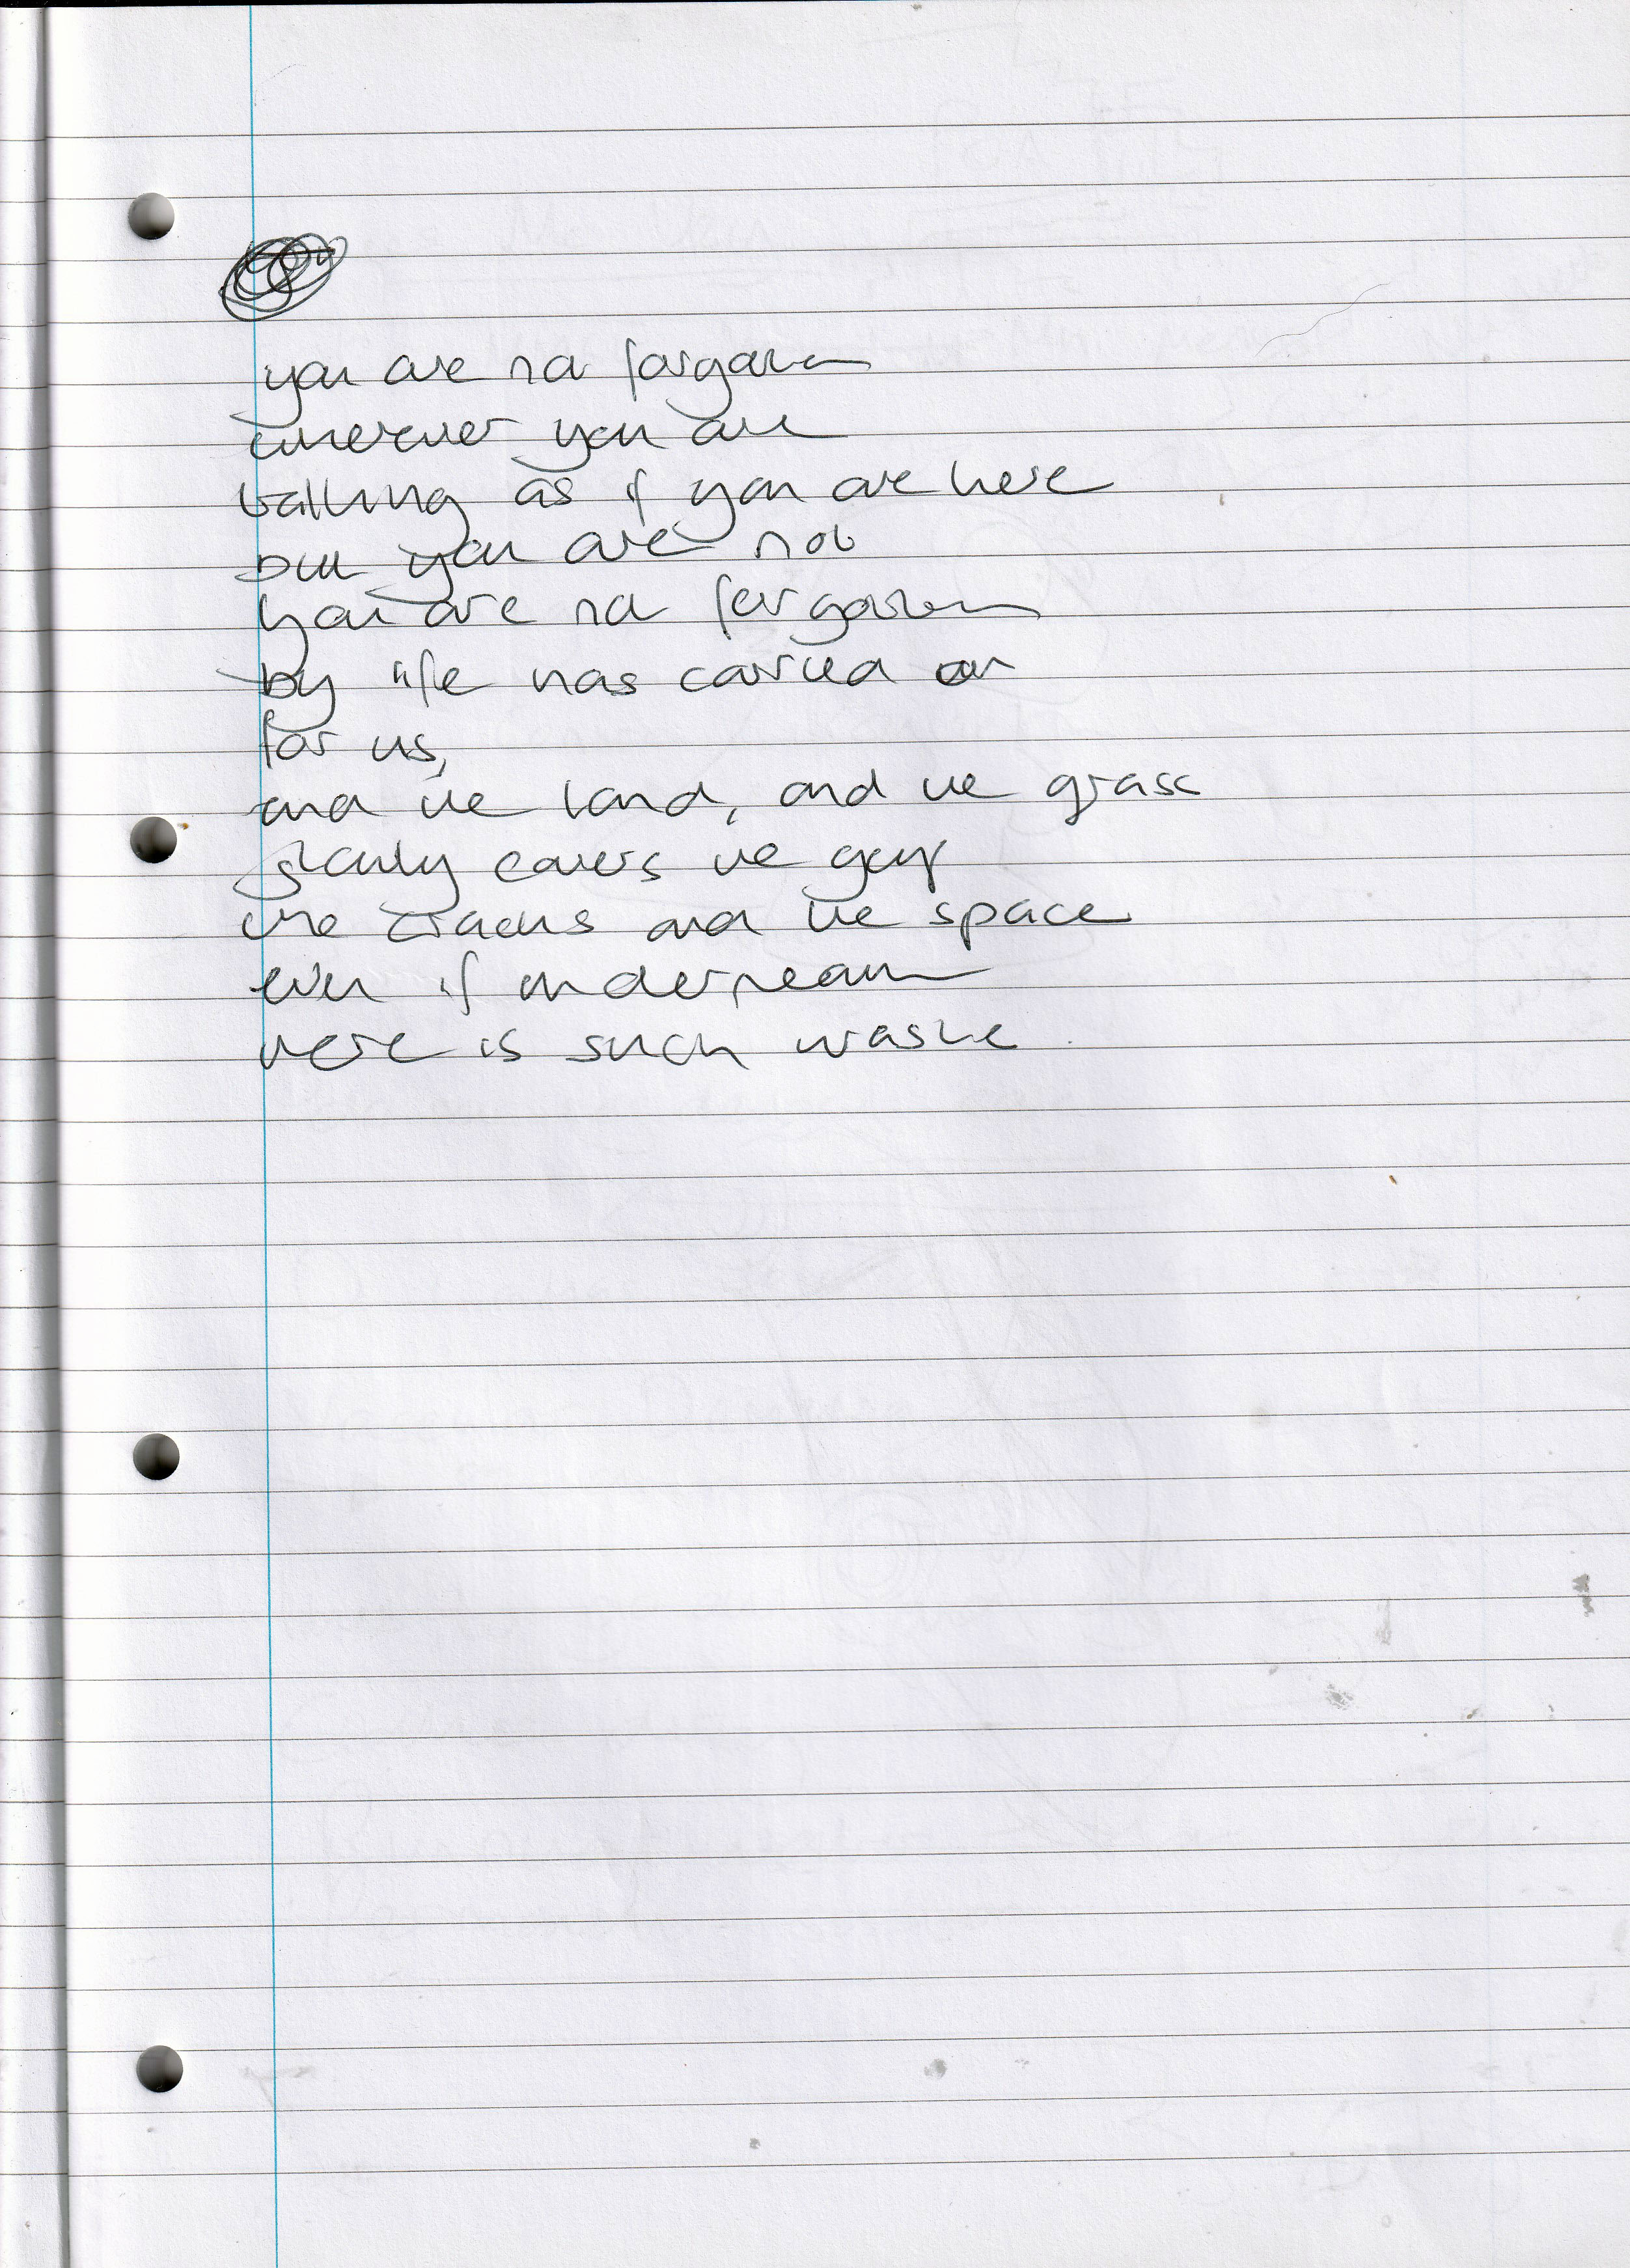 you are not forgotten
wherever you are
talking as if you are here
but you are not
you are not forgotten
by life has carried on
for us,
and the land, and the grass
slowly covers the gap
the cracks and the space
even if underneath
there is such waste